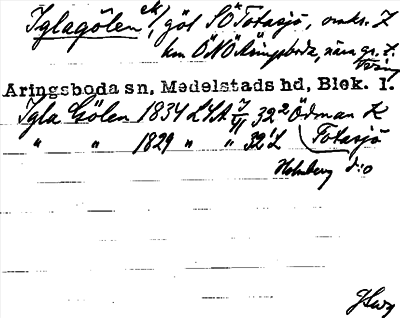 Iglagölen ek/, göl SÖ Totasjö, omkr. 2
km ÖNÖ Åringsboda, nära gr. t.
Tving
Åringsboda sn, Medelstads hd, Blek. l.
Igla Gölen 1834 LSA 32² Ödman K
" " 1829 " " 32¹ L Totasjö
Holmberg d:o